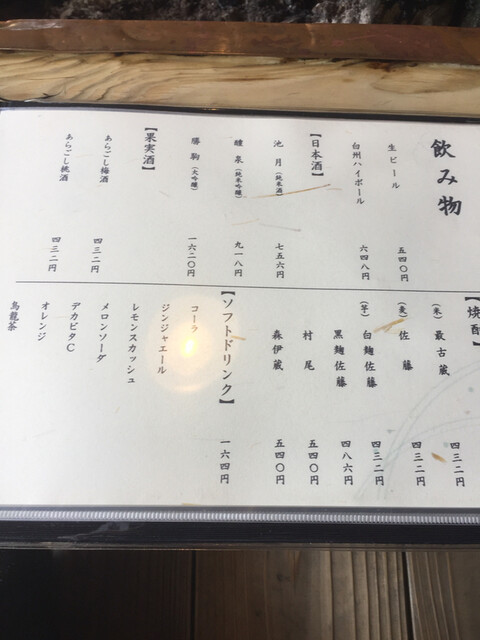 飲み物
生ビール 五四〇円
白州ハイボール 六四八円
【日本酒】
池月(純米酒) 七五六円
醴泉(純米吟醸) 九一八円
勝駒(大吟醸) 一六二〇円
【果実酒】
あらごし梅酒 四三二円
あらごし桃酒 四三二円
【焼酎
(米)最古蔵 四三二円
(麦)佐藤 四三二円
(芋)白麹佐藤 四三二円
黒麹佐藤 四八六円
村尾 五四〇円
森伊蔵 五四〇円
【ソフトドリンク】 一六四円
コーラ
ジンジャエール
レモンスカッシュ
メロンソーダ
デカビタC
オレンジ
烏龍茶